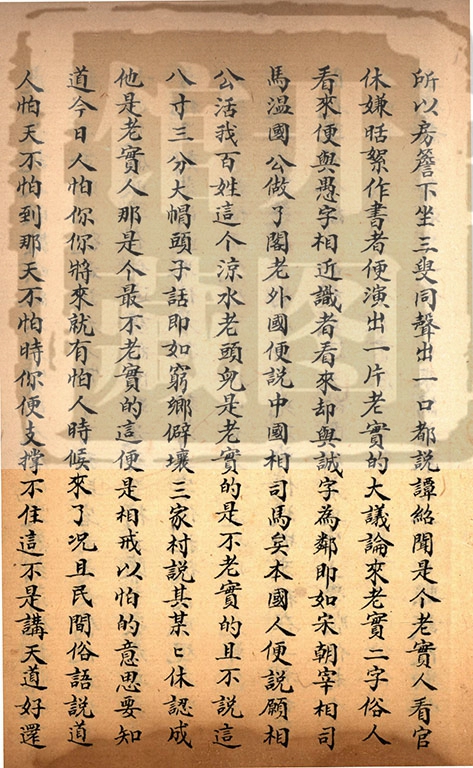 所以房簷下坐三叟同聲出一口都説譚紹聞是个老實人看官
休嫌聒絮作書者便演出一片老實的大議論來老實二字俗人
看來便與愚字相近識者看來却與誠字為鄰即如宋朝宰相司
馬溫國公做了閣老外國便説中國相司馬矣本國人便説願相
公活我百姓這个涼水老頭兒是老實的是不老實的且不説這
八寸三分大帽頭子話即如窮鄉僻壤三家村説其某〻休認成
他是老實人那是个最不老實的這便是相戒以怕的意思要知
道今日人怕你你將來就有怕人時候來了况且民間俗語説道
人怕天不怕到那天不怕時你便支撑不住這不是講天道好還